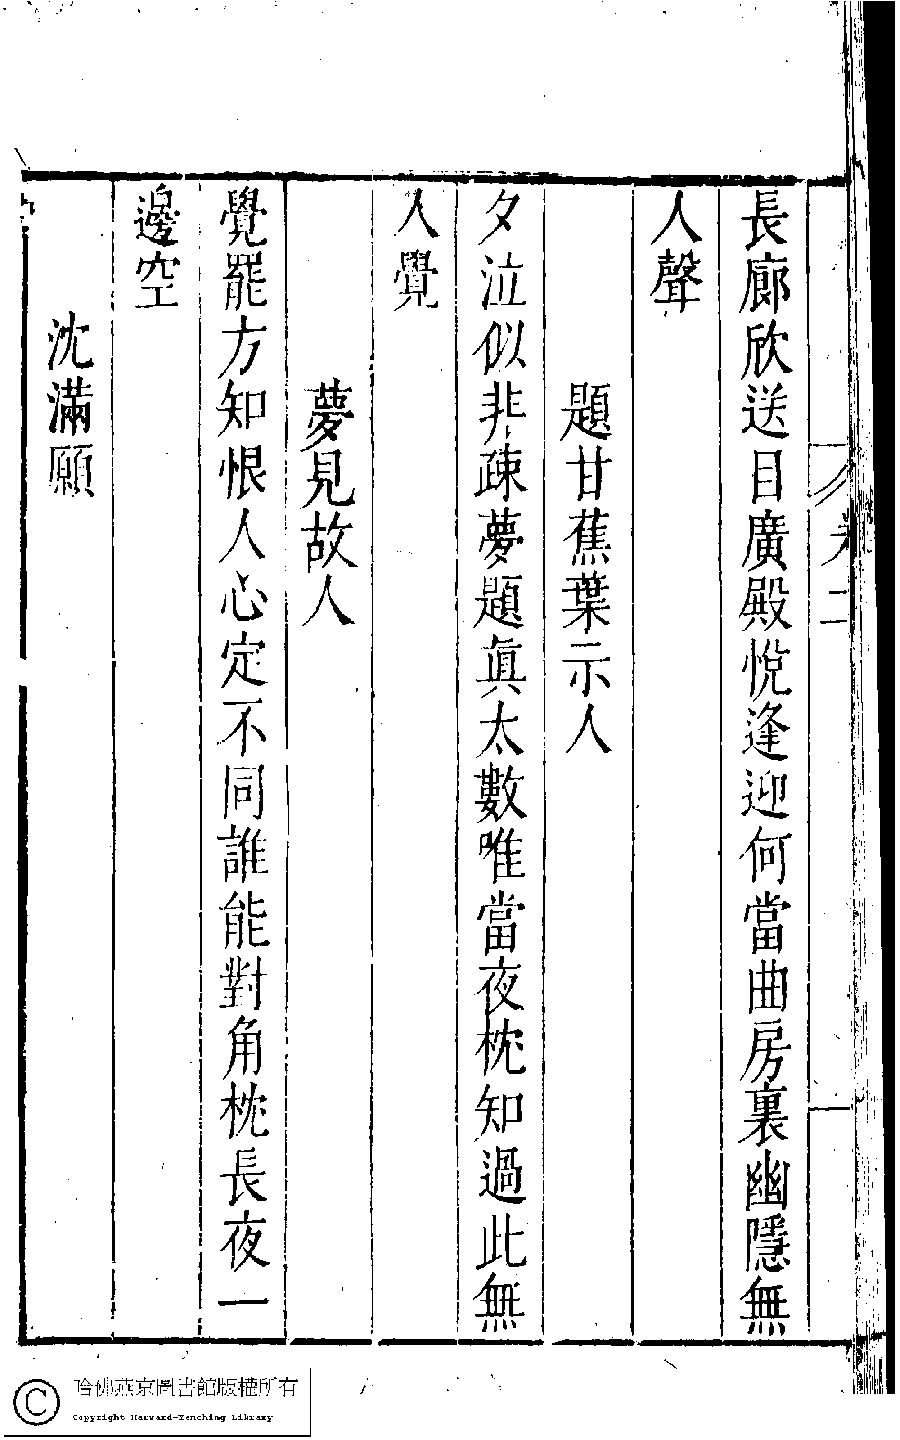 長廊欣送目廣殿悅逢迎何當曲房裏幽隱無
人聲
題甘蕉葉示人
夕泣似非疎夢題眞太數唯當夜枕知過此無
人覺
夢見故人
覺罷方知恨人心定不同誰能對角枕長夜一
邊空
沈滿願
卷二
哈佛燕京圖書館版權所有
Copyright Harvard-Yenching Library